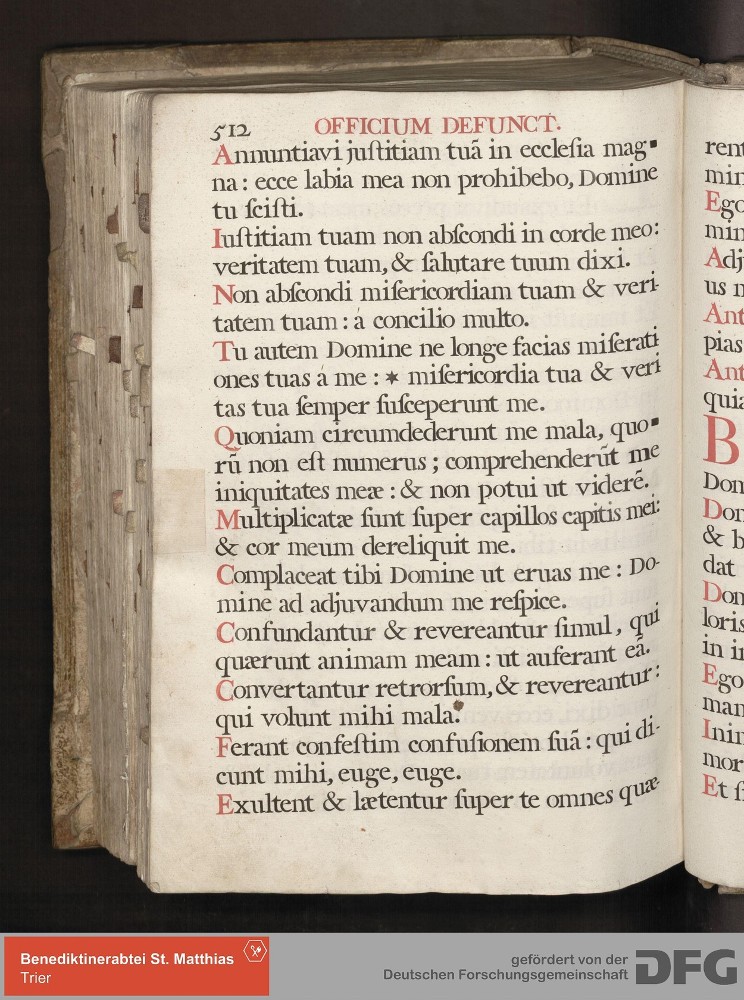 512 OFFICIUM DEFUNCT.
Annuntiavi juſtitiam tuã in eccleſia mag-
na : ecce labia mea non prohibebo, Domine
tu ſciſti.
Iuſtitiam tuam non abſcondi in corde meo:
veritatem tuam, & ſalutare tuum dixi.
Non abſcondi miſericordiam tuam & veri-
tatem tuam : á concilio multo.
Tu autem Domine ne longe facias miſerati
ones tuas á me : ✶ miſericordia tua & veri
tas tua ſemper ſuſceperunt me.
Quoniam circumdederunt me mala, quo-
rũ non eſt numerus ; comprehenderũt me
iniquitates meæ : & non potui ut viderẽ.
Multiplicatæ ſunt ſuper capillos capitis mei:
& cor meum dereliquit me.
Complaceat tibi Domine ut eruas me : Do-
mine ad adjuvandum me reſpice.
Confundantur & revereantur ſimul, qui
quærunt animam meam : ut auferant eã.
Convertantur retrorſum, & revereantur :
qui volunt mihi mala.
Ferant confeſtim confuſionem ſuã : qui di-
cunt mihi, euge, euge.
Exultent & lætentur ſuper te omnes quæ-
rent
min
Ego
min
Adj
us n
Ant
pias
Ant
quia
B
Don
Don
& b
dat
Don
loris
in i
Ego
man
Inin
mor
Et ſi
Benediktinerabtei St. Matthias
Trier
gefördert von der
Deutschen Forschungsgemeinschaft
DFG